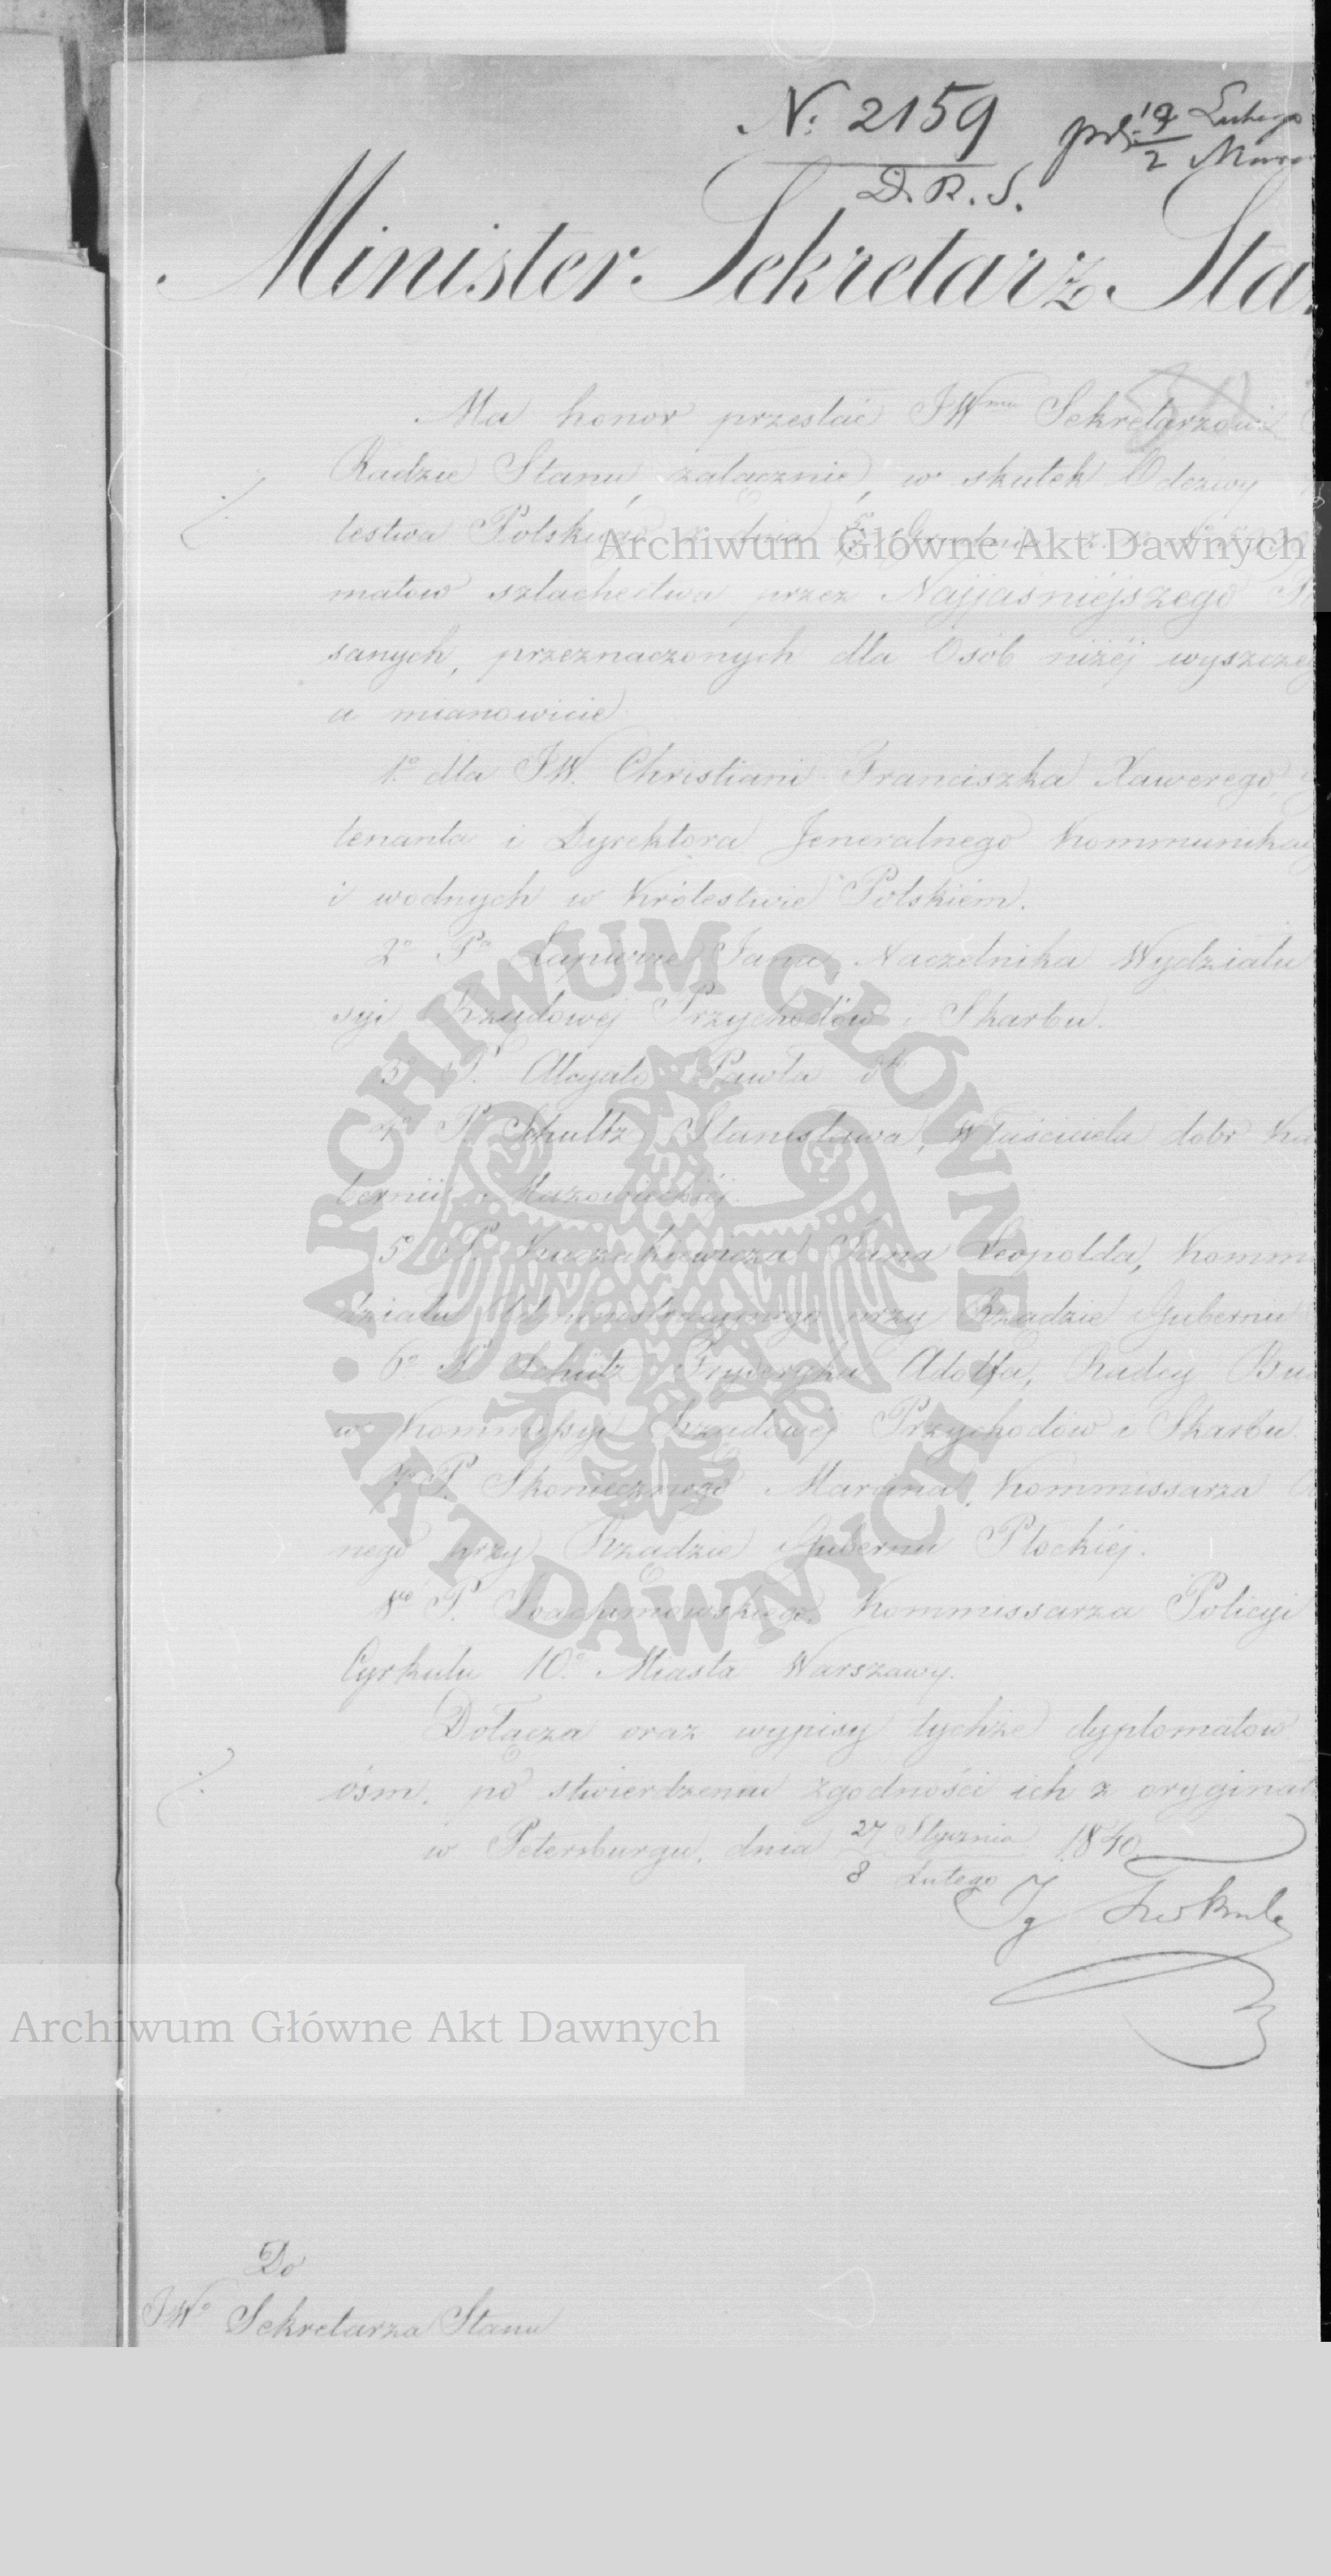 N. 2159
D. R. S.
19 Lutego
2 Marc
Minister Sekretarz Sta
Ma honor przesłać JWmu Sekretarzowi
Radzie Stanu załącznie, w skutek Odezwy
lestwa Polskiego z dnia Grudnia
matow szlachectwa przez Najjaśniéjszego
sanych, przeznaczonych dla Osób niżéj wyszczeg
a mianowicie
1o dla JW. Christiani Franciszka Xawerego,
tenanta i Dyrektora Jeneralnego Kommunikacy
i wodnych w Królestwie Polskiém.
2o Pa Łapierre Jana Naczelnika Wydziału
syi Rządowéj Przychodów i Skarbu.
3o P. Alcyato Pawła dto
4o P. Schultz Stanisława, Właściciela dobr
bernii Mazowieckiéj.
5o P. Kuczakiewicza Jana Leopolda, Komm
działu Administracyjnego przy Rządzie Gubernii
6o P. Schütz Fryderyka Adolfa, Radcy
w Kommissyi Rządowéj Przychodów i Skarbu.
7o P. Skoniecznego Marcina, Kommissarza
nego przy Rządzie Gubernii Płockiéj.
8o P. Joachimowskiego, Kommissarza Policyi
Cyrkułu 10o Miasta Warszawy.
Dołącza oraz wypisy tychże dyplomatow
ośm, po stwierdzeniu zgodności ich z oryginał
w Petersburgu, dnia 27 Stycznia 1840
8 Lutego
Ig Turkuł
Do
JWo Sekretarza Stanu
Archiwum Główne Akt Dawnych
Archiwum Główne Akt Dawnych
· ARCHIWUM GŁÓWNE · AKT DAWNYCH